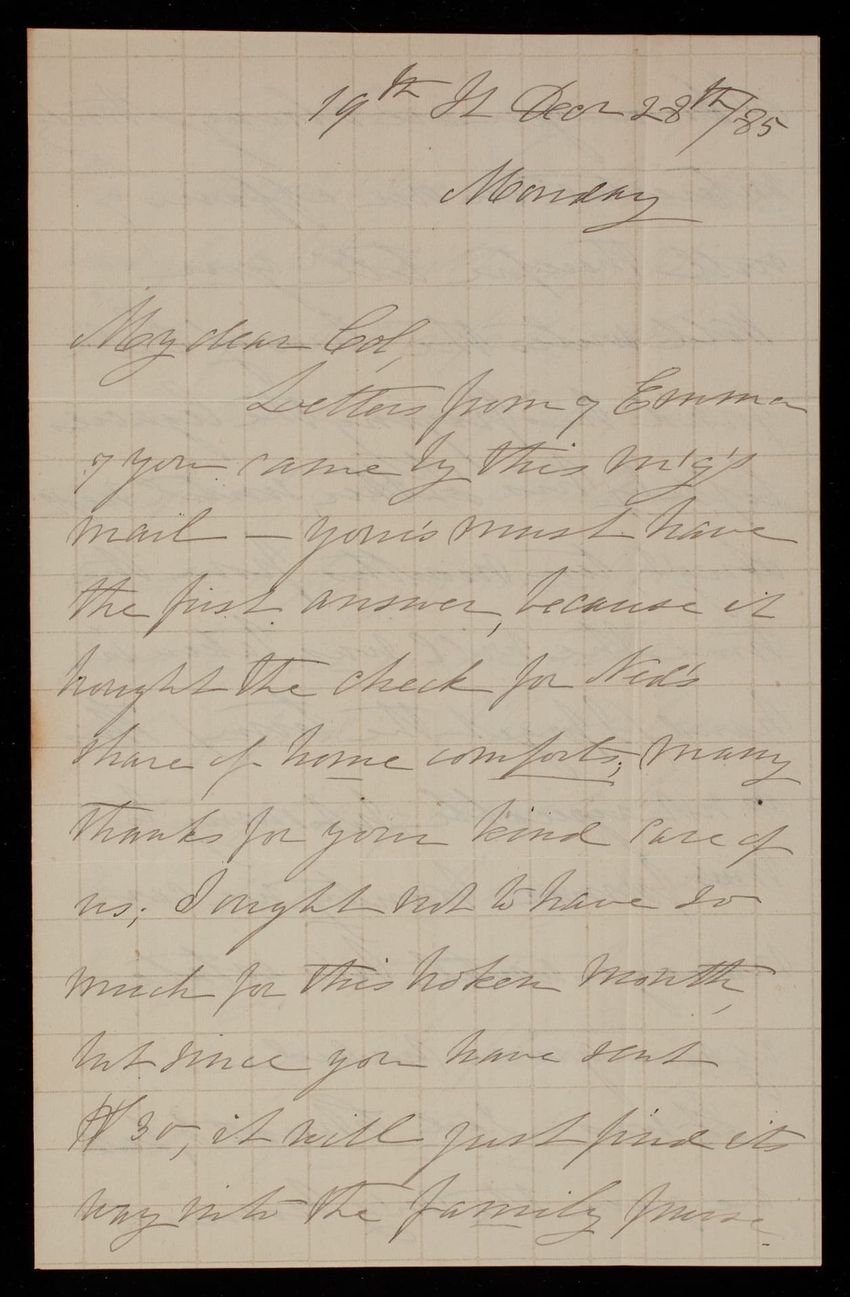 19th St Decr 28th/85
Monday
My dear Col,
Letters from & Emma
& you came by this m'g's
mail — your's must have
the first answer, because it
bought the check for Ned's
share of home comforts; many
thanks for your kind care of
us; I ought not to have so
much for this broken month,
but since you have sent
$30, it will just find its
way into the family purse.